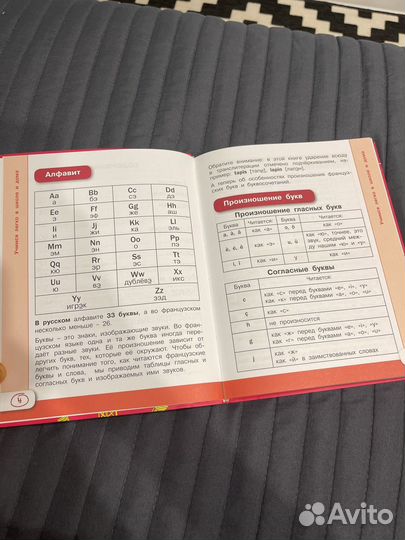 Учимся легко в школе и дома
Алфавит
Aa Bb Cc Dd
а бэ сэ дэ
Ee Ff Gg Hh
э эф же аш
Ii Jj Kk Ll
и жи ка эль
Mm Nn Oo Pp
эм эн о пэ
Qq Rr Ss Tt
кю эр эс тэ
Uu Vv Ww Xx
ю вэ дублёвэ икс
Yy Zz
игрэк зэд
В русском алфавите 33 буквы, а во французском
несколько меньше – 26.
Буквы – это знаки, изображающие звуки. Во фран-
цузском языке одна и та же буква иногда пере-
даёт разные звуки. Её произношение зависит от
других букв, тех, которые её окружают. Чтобы об-
легчить понимание того, как читаются французские
буквы и слова, мы приводим таблицы гласных и
согласных букв и изображаемых ими звуков.
4
Обратите внимание: в этой книге ударение всюду
в транслитерации отмечено подчёркиванием, на-
пример: tapis [тапи], lapin [лапэн].
А теперь об особенностях произношения француз-
ских букв и буквосочетаний.
Произношение букв
Произношение гласных букв
Буква Читается: Буква Читается:
a, à, â как «а» o, ô как «о»
как «э» u, û как «ю», точнее, это
звук, средний меж-
ду нашим «ю» и «у»
i, î как «и» y как «и»
Согласные буквы
Буква Читается:
c как «с» перед буквами «e», «i», «y»
как «к» перед буквами «a», «o», «u»
ç как «с»
h не произносится
g как «ж» перед буквами «e», «i», «y»
как «г» перед буквами «a», «o», «u»
j как «ж»
как «й» в заимствованных словах
Учимся легко в школе и дома
Avito